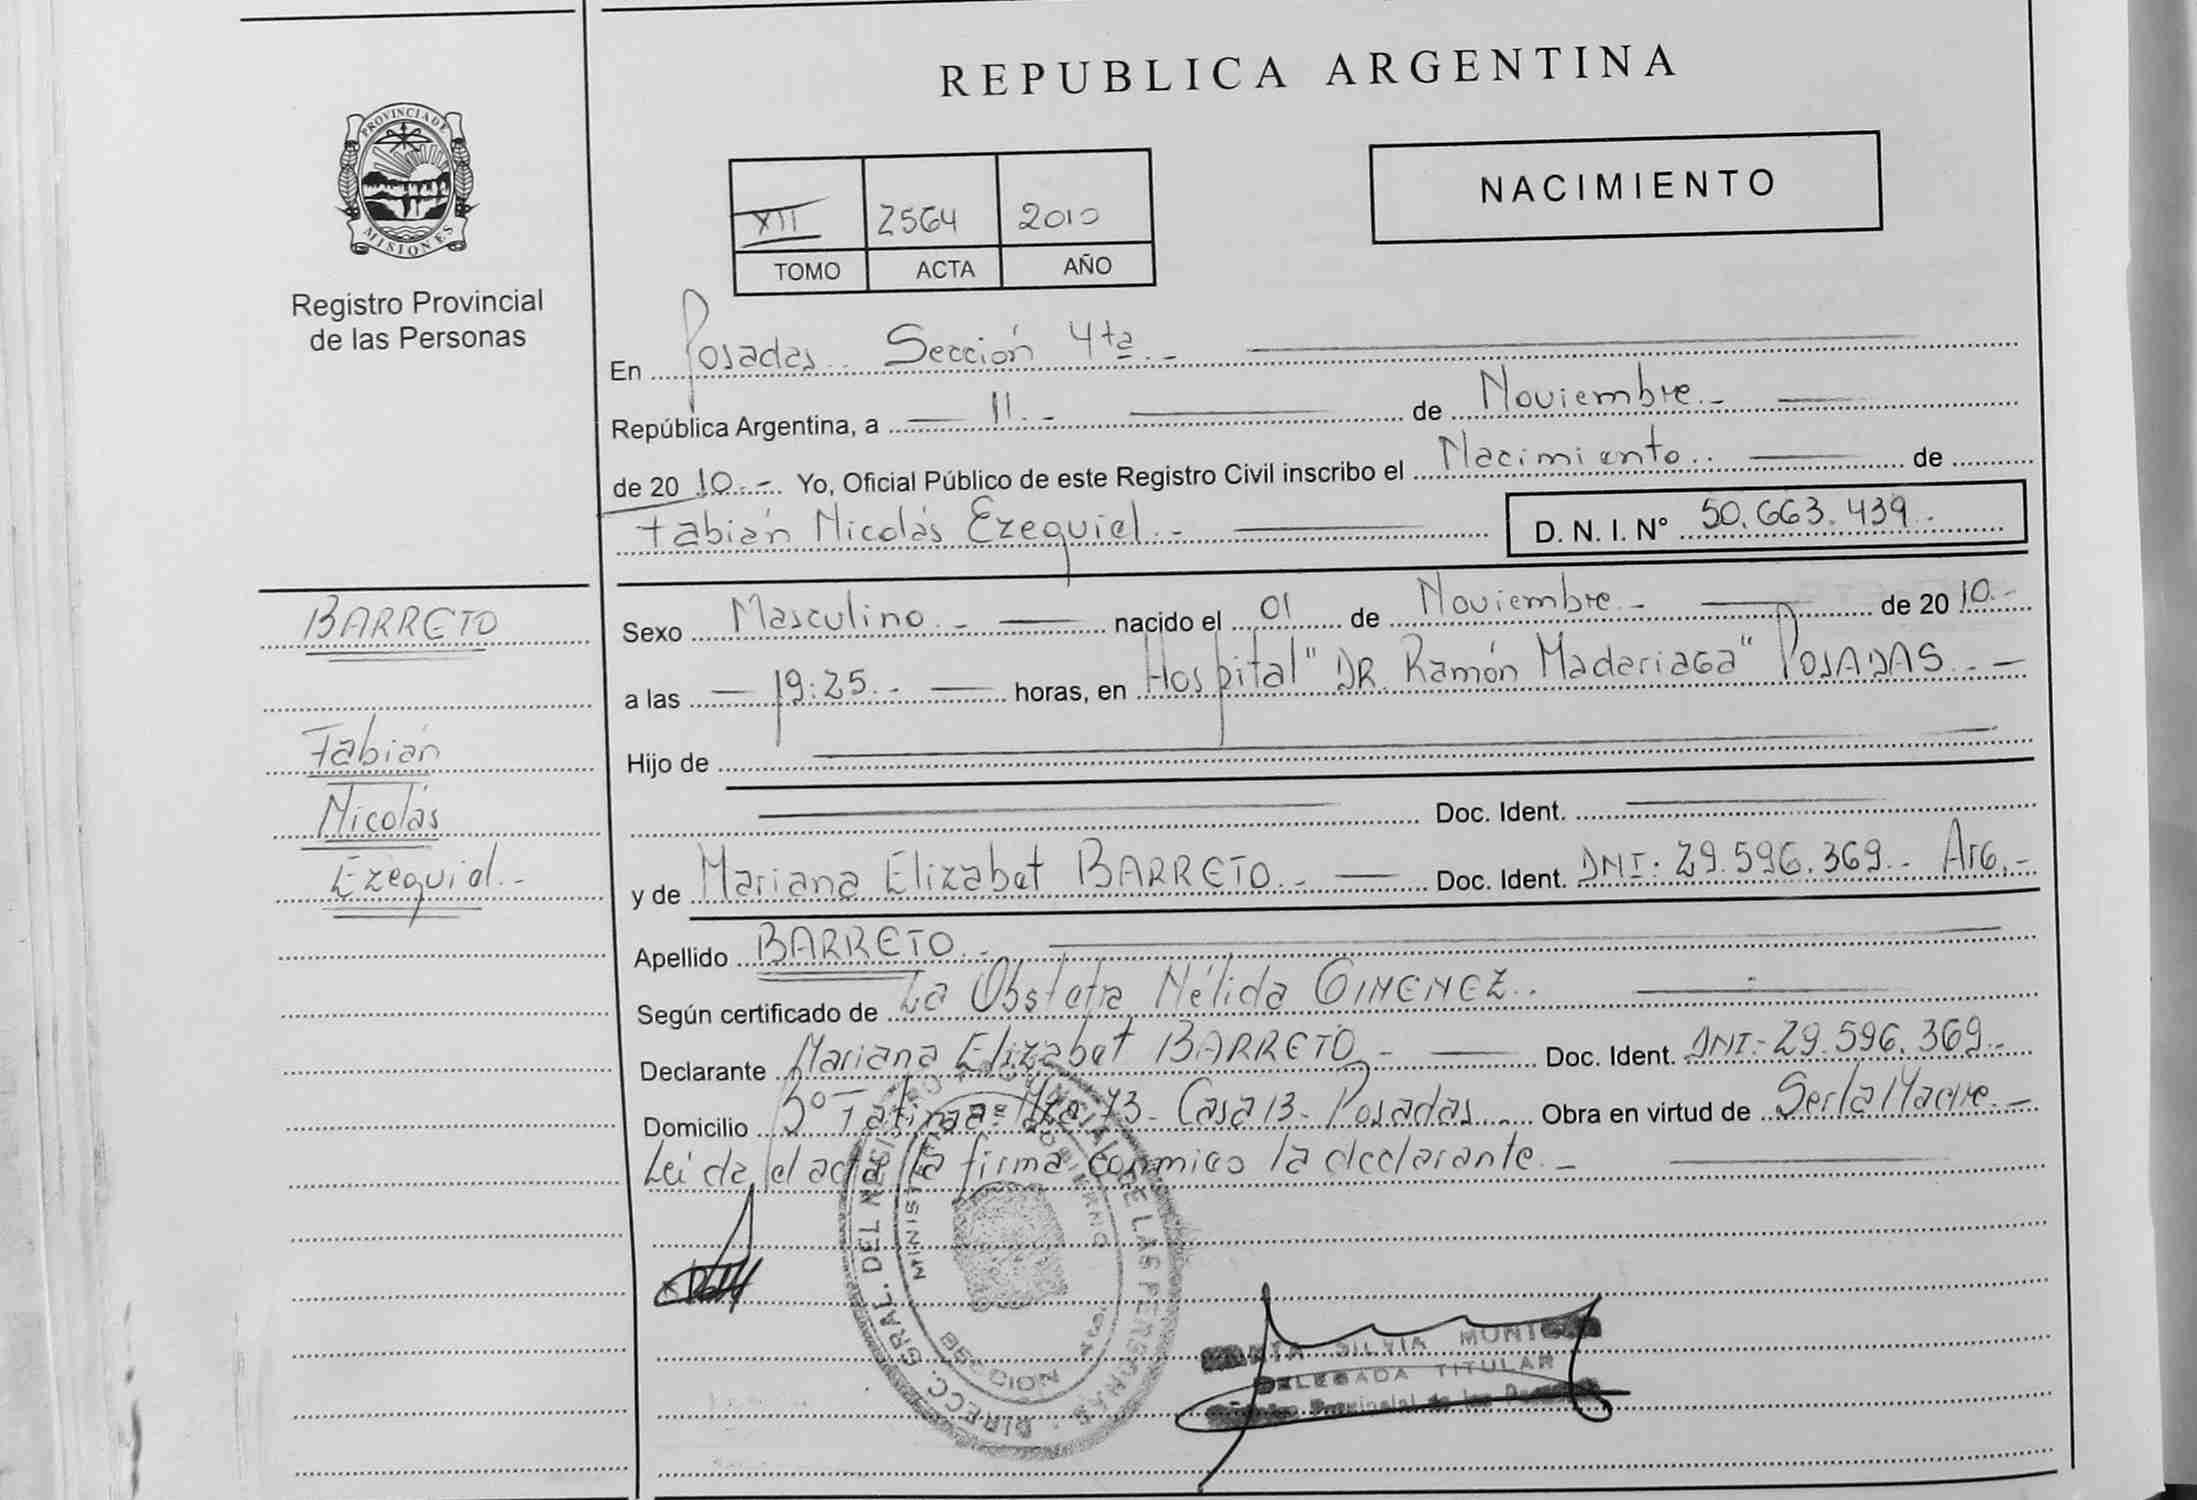 REPUBLICA ARGENTINA
PROVINCIA DE
MISIONES
Registro Provincial
de las Personas
NACIMIENTO
XII 2564 2010
TOMO ACTA AÑO
En Posadas Sección 4ta.-
República Argentina, a 11.- de Noviembre.-
de 2010.- Yo, Oficial Público de este Registro Civil inscribo el Nacimiento.. de
Fabián Nicolás Ezequiel.- D. N. I. N° 50.663.439.-
BARRETO
Fabián
Nicolás
Ezequiel.-
Sexo Masculino.- nacido el 01 de Noviembre.- de 2010.-
a las 19:25.- horas, en Hospital "DR. Ramón Madariaga" POSADAS.-
Hijo de
Doc. Ident.
y de Mariana Elizabet BARRETO.- Doc. Ident. DNI: 29.596.369.- Arg.-
Apellido BARRETO.-
Según certificado de La Obstetra Nélida GIMENEZ..
Declarante Mariana Elizabet BARRETO.- Doc. Ident. DNI:- 29.596.369.-
Domicilio Mza 73- Casa 13- Posadas.- Obra en virtud de Ser la Madre.-
Leída el acta la firma conmigo la declarante.-
DIRECC. GRAL. DEL REGISTRO PROVINCIAL DE LAS PERSONAS
SILVIA
DELEGADA TITULAR
Provincial de las Personas